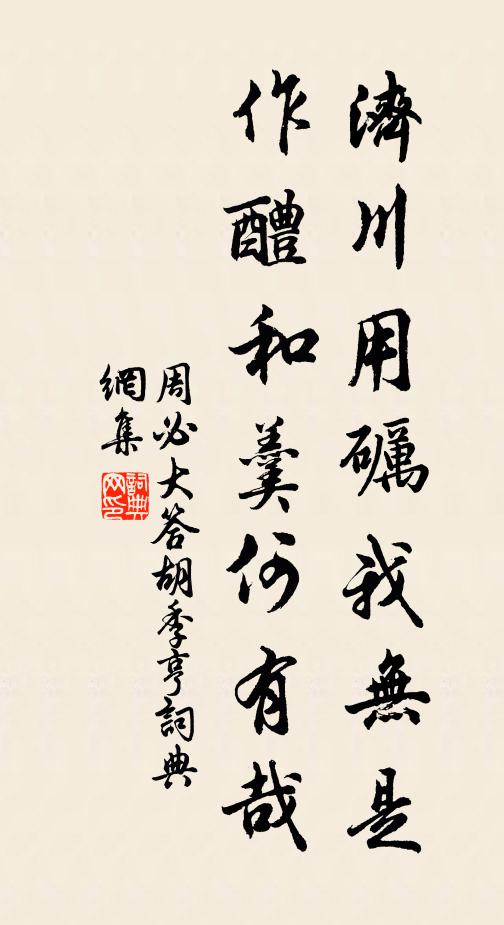 濟川用礪我無是
作醴和羹何有哉
周必大答胡季亨詞典
網集
詞典
网印